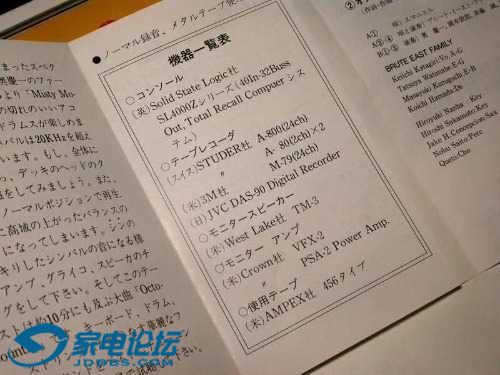 まったスペク
より「Misty Mo
の切れのいいアコ
ドラムスが楽しめま
バルは20KHzを超え
います。もし、全体に
っ、デッキのヘッドのク
をしてみましょう。また、
ノーマルポジションで再生
と高域の上がったバランスの
になってしまいます。シンの
キリしたシンバルの音になる様
アンプ、グライコ、スピーカのチ
グをして下さい。そしてこのテー
ストは約10分にも及ぶ大曲「Octo-
キーボード、ドラム、
●ノーマル録音、メタルテープ使
機器一覧表
○コンソール
(英)Solid State Logic社
SL4000Zシリーズ(40In-32Buss
Out, Total Recall Compuer シス
テム)
○テープレコーダ
(スイス)STUDER社 A-800(24ch)
〃 A-80(2ch)×2
(米)3M社 M-79(24ch)
(日)JVC DAS-90 Digital Recorder
○モニタースピーカー
(米)West Lake社 TM-3
○モニター アンプ
(米)Crown社 VFX-2
〃 PSA-2 Power Amp.
○使用テープ
(米)AMPEX社 456タイプ
BRUTE EAST FAMILY
Keiichi Katagiri=Vo, A-G
Tatsuya Watanabe=E-G
Masayuki Kumagai=E-B
Koichi Hamada=Ds
Hiroyuki Kasha=Key
Hiroshi Sakamoto=Key
Jake H. Concepcion=Sax
家电论坛
JDBBS.COM